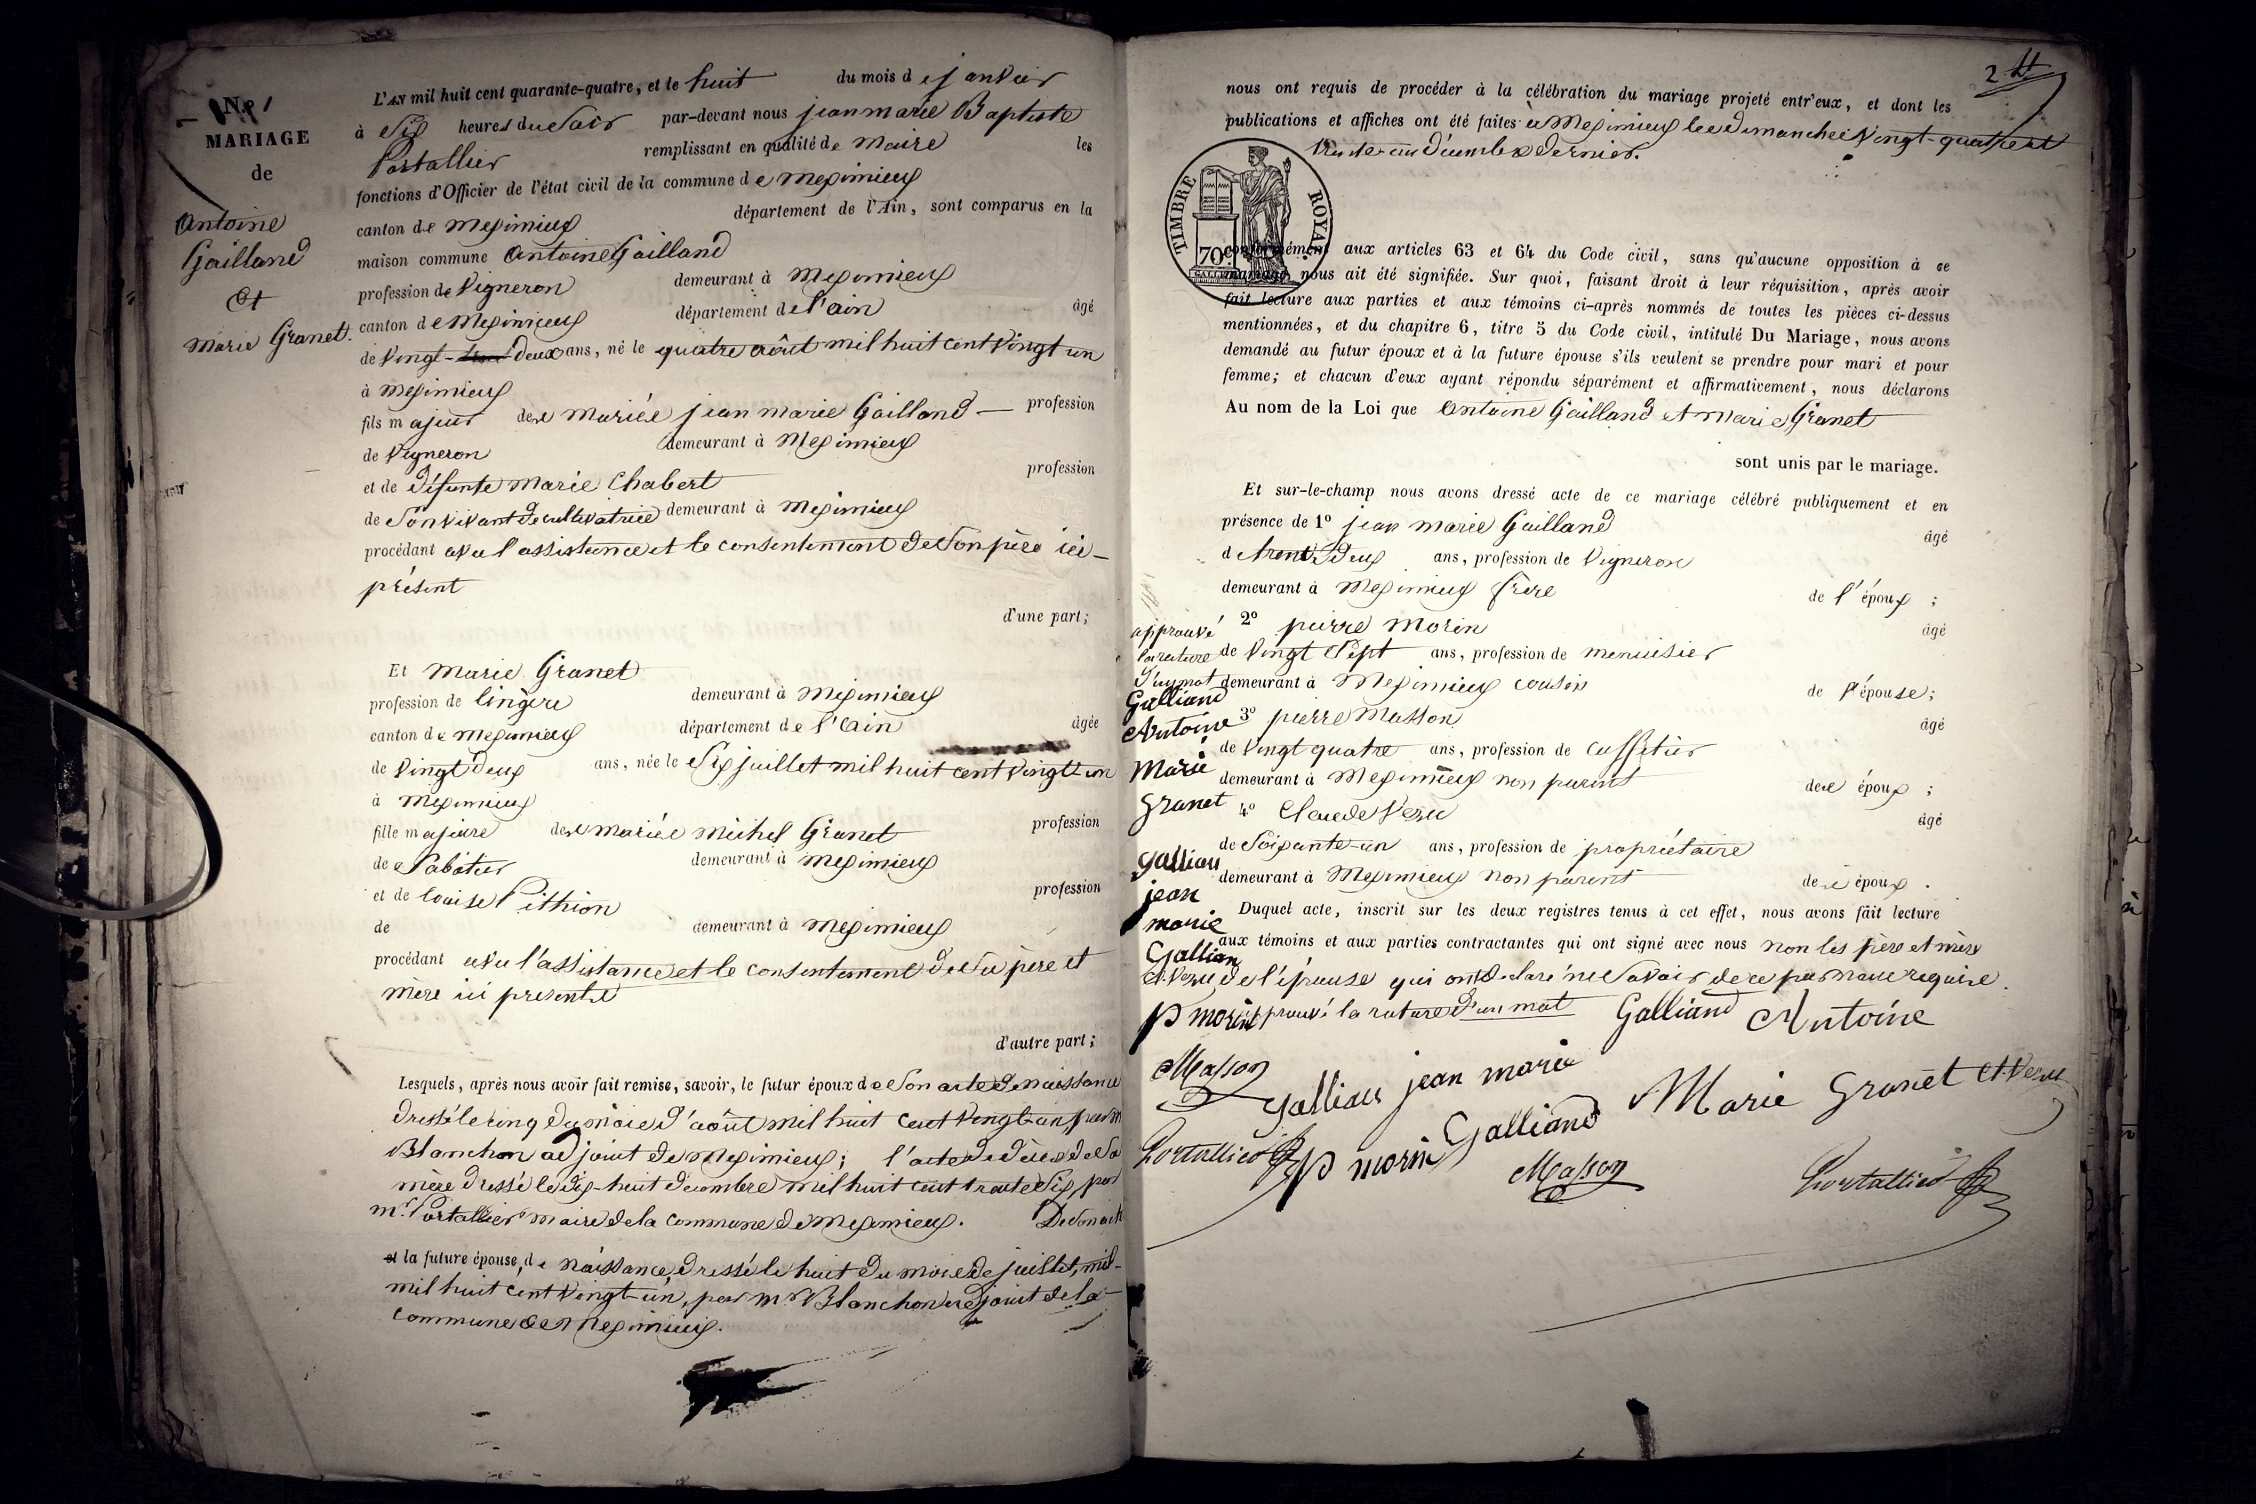 N.º 1
MARIAGE
de
Antoine
Gailland
Et
Marie Granet.
L'AN mil huit cent quarante-quatre, et le huit du mois de janvier
à Six heures du Soir par-devant nous jean marie Baptiste
Portallier remplissant en qualité de maire les
fonctions d'Officier de l'état civil de la commune de meximieux
canton de meximieux département de l'Ain, sont comparus en la
maison commune Antoine Gailland
profession de Vigneron demeurant à meximieux
canton de Meximieux département de l'ain âgé
de Vingt- deux ans, né le quatre août mil huit cent Vingt un
à meximieux
fils majeur de mariée jean marie Gailland — profession
de Vigneron demeurant à Meximieux
et de défunte Marie Chabert profession
de Son vivant de cultivatrice demeurant à meximieux
procédant avec l'assistance et le consentement de Son père ici-
présent
d'une part;
Et Marie Granet
profession de lingère demeurant à meximieux
canton de meximieux département de l'Ain âgée
de Vingt deux ans, née le Six juillet mil huit cent Vingt-un
à meximieux
fille majeure de mariée michel Granet profession
de Sabotier demeurant à meximieux
et de louise Pithion profession
de demeurant à meximieux
procédant avec l'assistance et le consentement de Sa père et
mère ici présents
d'autre part;
Lesquels, après nous avoir fait remise, savoir, le futur époux de Son acte de naissance
dressé le cinq du mois d'août mil huit cent Vingt-un, par m
Blanchon adjoint de meximieux; l'acte de décès de Sa
mère dressé le dix-huit décembre mil huit cent trente Six, par
mr. Portallier maire de la commune de meximieux. De Son acte
et la future épouse, de naissance, dressé le huit du mois de juillet, mil-
mil huit cent Vingt-un, par mr. Blanchon adjoint de la
commune de Meximieux.
2
nous ont requis de procéder à la célébration du mariage projeté entr'eux, et dont les
publications et affiches ont été faites à Meximieux les dimanches Vingt-quatre et
trente-un décembre dernier.
TIMBRE ROYAL
70c.
conformément aux articles 63 et 64 du Code civil, sans qu'aucune opposition à ce
mariage nous ait été signifiée. Sur quoi, faisant droit à leur réquisition, après avoir
fait lecture aux parties et aux témoins ci-après nommés de toutes les pièces ci-dessus
mentionnées, et du chapitre 6, titre 5 du Code civil, intitulé Du Mariage, nous avons
demandé au futur époux et à la future épouse s'ils veulent se prendre pour mari et pour
femme; et chacun d'eux ayant répondu séparément et affirmativement, nous déclarons
Au nom de la Loi que Antoine Gailland et Marie Granet
sont unis par le mariage.
Et sur-le-champ nous avons dressé acte de ce mariage célébré publiquement et en
présence de 1º jean marie Gailland âgé
de trente Deux ans, profession de Vigneron
demeurant à Meximieux frère de l'époux ;
2º pierre Morin âgé
de Vingt Sept ans, profession de menuisier
demeurant à Meximieux cousin de l'épouse;
3º pierre Masson âgé
de Vingt quatre ans, profession de caffetier
demeurant à Meximieux non parent de époux ;
4º Claude Veru âgé
de Soixante-un ans, profession de propriétaire
demeurant à Meximieux non parent de époux.
Duquel acte, inscrit sur les deux registres tenus à cet effet, nous avons fait lecture
aux témoins et aux parties contractantes qui ont signé avec nous non les père et mère
de l'épouse qui ont déclaré ne Savoir de ce par nous requis.
approuvé la rature d'un mot
approuvé
la rature
d'un mot
Galliand
Antoine
Marie
Granet
galliau
jean
marie
Gallian
P morin
Masson
Portallier
Galliand Antoine
galliau jean marie
Marie Granet
Galliand
P morin
Masson
Portallier